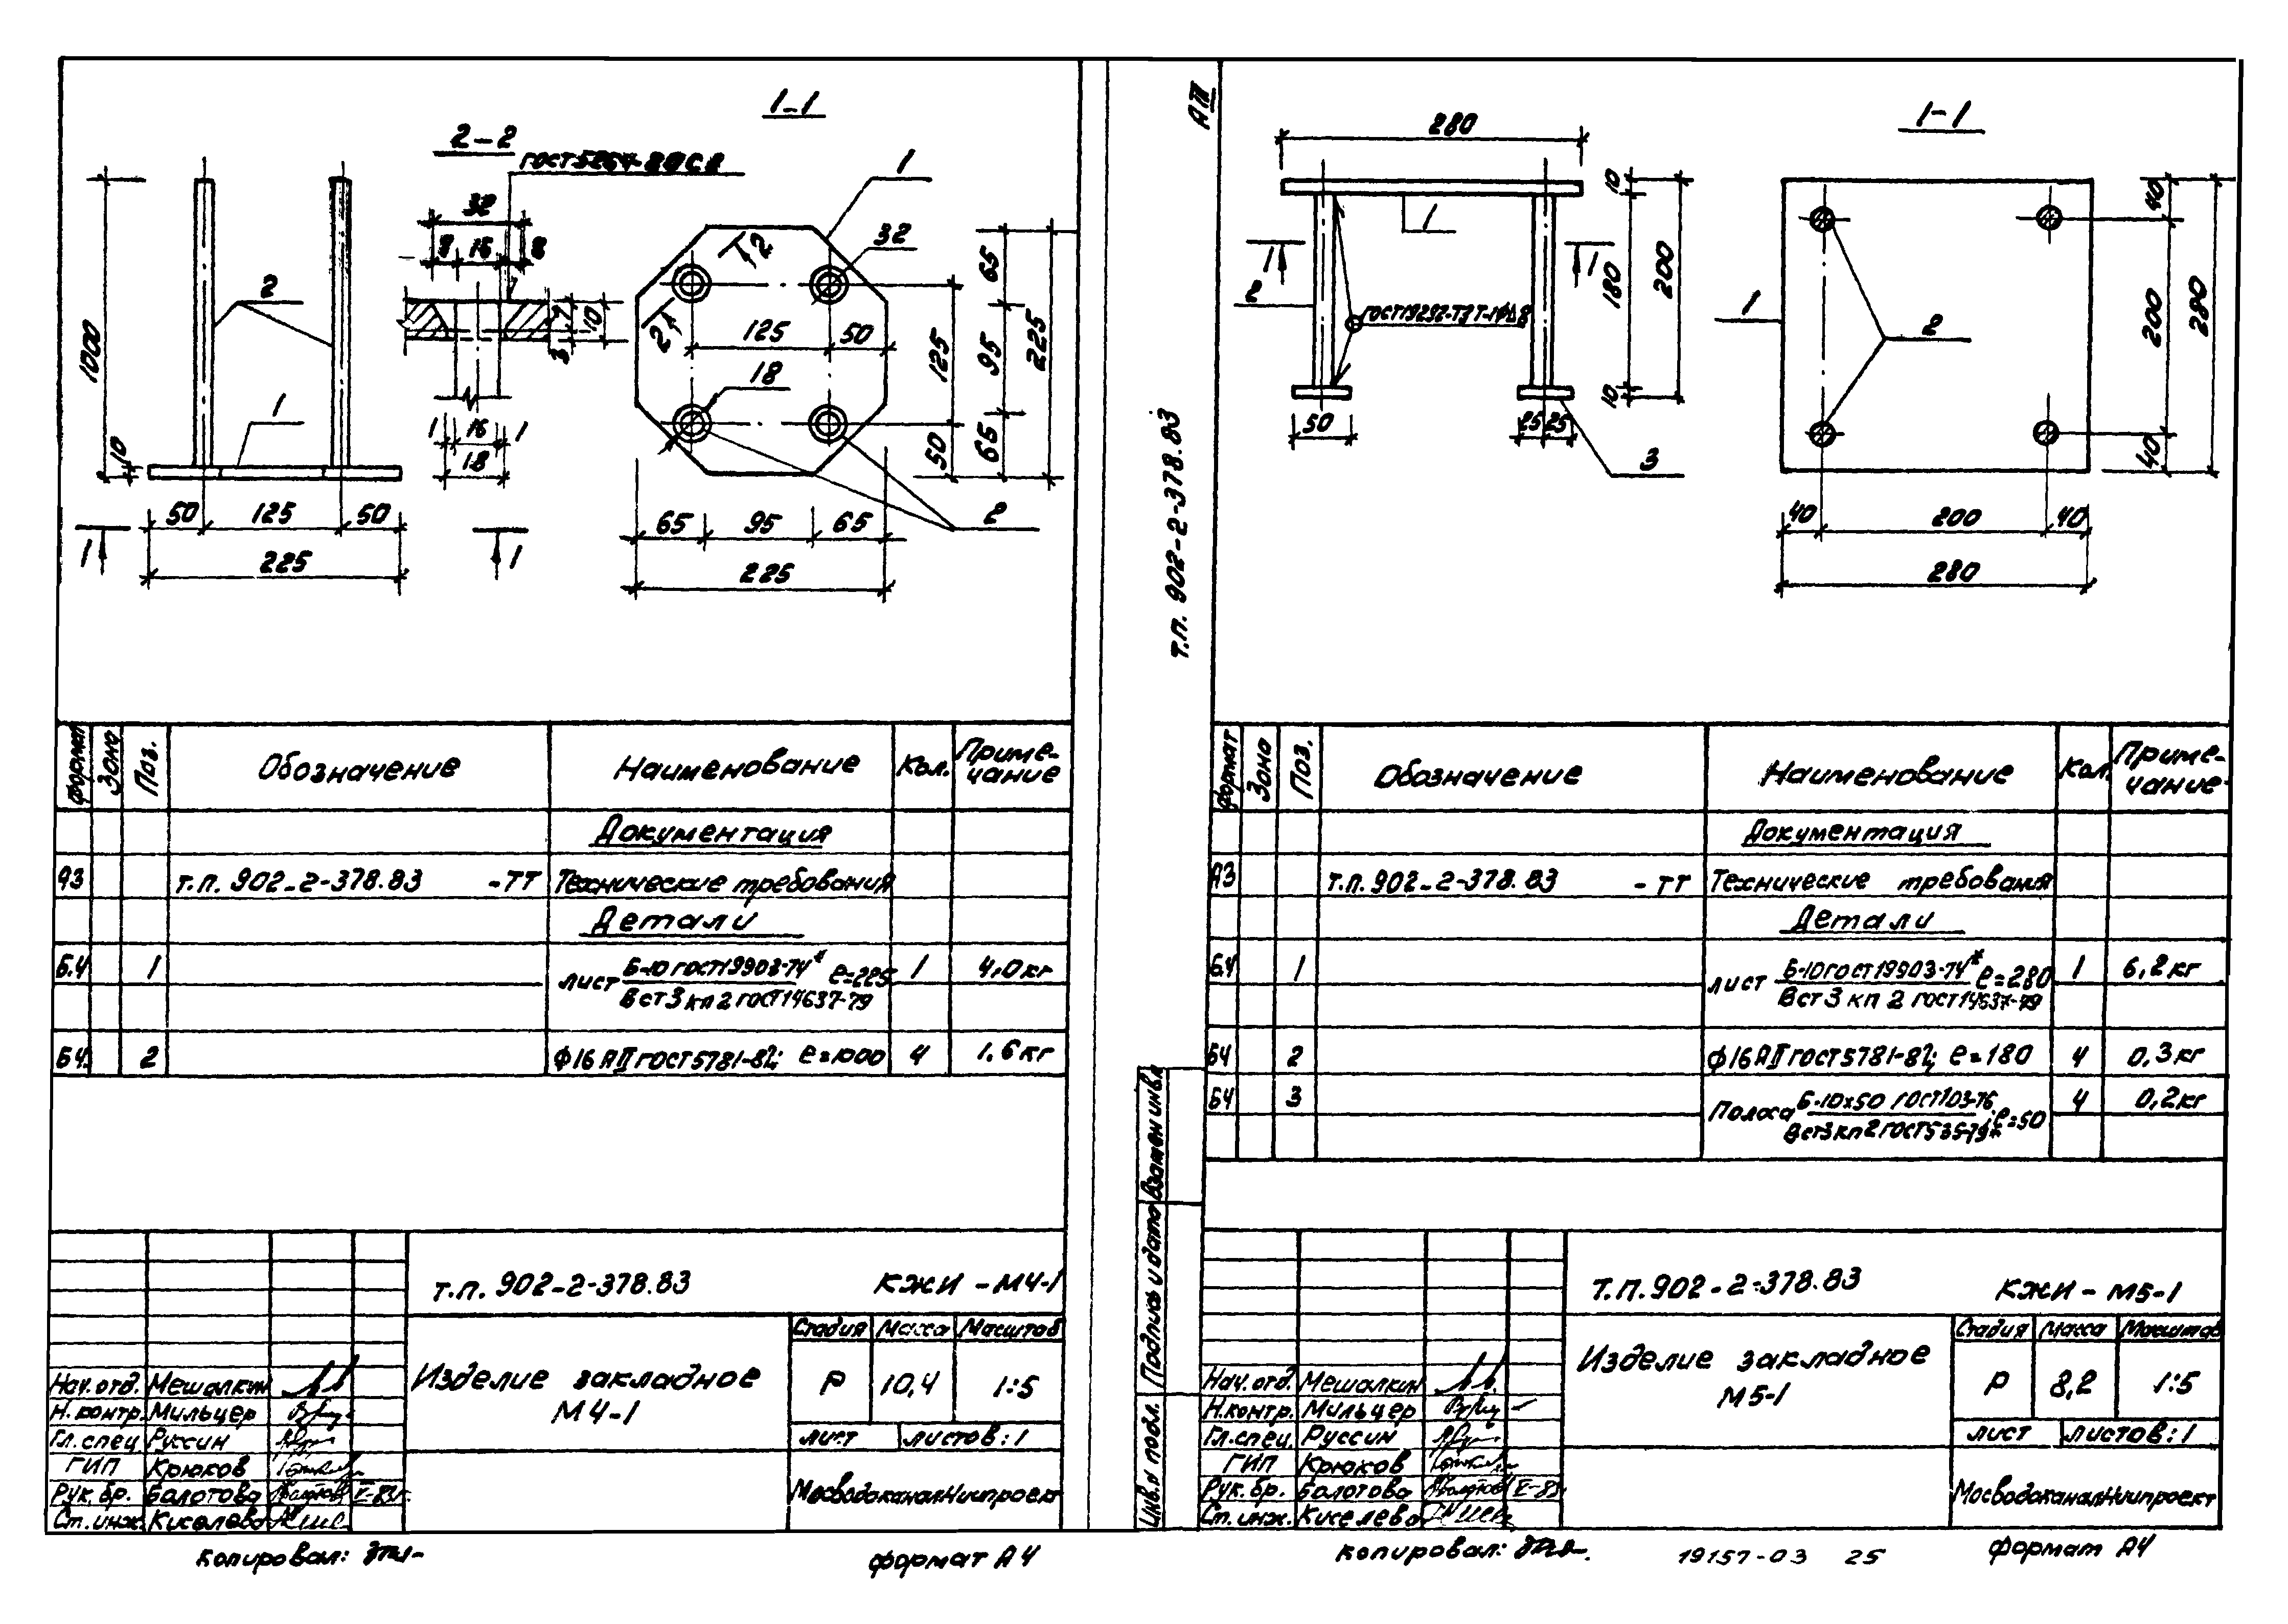 1-1
2-2
32
8 16 8
7
10
3
1 16 1
18
1000
10
2
1
50 125 50
225
1 1
1
32
2
2
125 50
18
2
65
95
65
225
125
50
65 95 65
225
Формат Зона Поз. Обозначение Наименование Кол. Приме-
чание
Документация
А3 т.п. 902-2-378.83 -ТТ Технические требования
Детали
Б.4 1 лист Б-10 ГОСТ19903-74* ℓ=225 1 4,0кг
Вст3кп2 ГОСТ14637-79
Б4. 2 ф16 АII ГОСТ5781-82; ℓ=1000 4 1,6кг
т.п. 902-2-378.83 КЖИ-М4-1
Изделие закладное
М4-1
Стадия Масса Масштаб
Р 10,4 1:5
лист листов:1
МосводоканалНиипроект
Нач.отд. Мешалкин
Н.контр. Мильцер
Гл.спец Руссин
ГИП Крюков
Рук.бр. Болотова
Ст.инж. Киселева
копировал:
формат А4
АIII
т.п. 902-2-378.83
Взамен инв.№
Подпись и дата
Инв.№ подл.
280
1
1 1
2
3
50
25 25
10
180
10
200
1-1
1
2
40
200
40
280
40 200 40
280
Формат Зона Поз. Обозначение Наименование Кол. Приме-
чание
Документация
А3 т.п. 902-2-378.83 -ТТ Технические требования
Детали
Б4 1 лист Б-10 ГОСТ19903-74* ℓ=280 1 6,2кг
Вст3кп2 ГОСТ14637-79
Б4 2 ф16 АII ГОСТ5781-82; ℓ=180 4 0,3кг
Б4 3 Полоса Б-10х50 ГОСТ103-76 ; ℓ=50 4 0,2кг
Вст3кп2 ГОСТ535-79*
Т.П. 902-2-378.83 КЖИ-М5-1
Изделие закладное
М5-1
Стадия Масса Масштаб
Р 8,2 1:5
лист листов:1
МосводоканалНиипроект
Нач.отд. Мешалкин
Н.контр. Мильцер
Гл.спец. Руссин
ГИП Крюков
Рук.бр. Болотова
Ст.инж. Киселева
копировал:
19157-03 25
формат А4